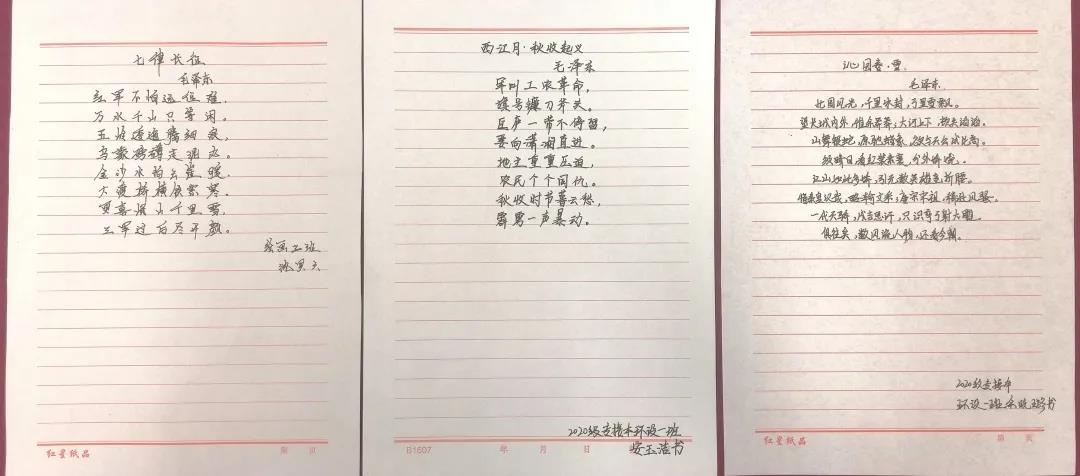 七律 长征
毛泽东
红军不怕远征难,
万水千山只等闲。
五岭逶迤腾细浪,
乌蒙磅礴走泥丸。
金沙水拍云崖暖,
大渡桥横铁索寒。
更喜岷山千里雪,
三军过后尽开颜。
绘画二班
红星纸品
第 页
西江月·秋收起义
毛泽东
军叫工农革命,
旗号镰刀斧头。
匡庐一带不停留,
要向潇湘直进。
地主重重压迫,
农民个个同仇。
秋收时节暮云愁,
霹雳一声暴动。
2020级专接本环设一班
安玉洁书
B1607
年 月 日
沁园春·雪
毛泽东
北国风光,千里冰封,万里雪飘。
望长城内外,惟余莽莽;大河上下,顿失滔滔。
山舞银蛇,原驰蜡象,欲与天公试比高。
须晴日,看红装素裹,分外妖娆。
江山如此多娇,引无数英雄竞折腰。
惜秦皇汉武,略输文采;唐宗宋祖,稍逊风骚。
一代天骄,成吉思汗,只识弯弓射大雕。
俱往矣,数风流人物,还看今朝。
2020级专接本
环设一班
红星纸品
第 页